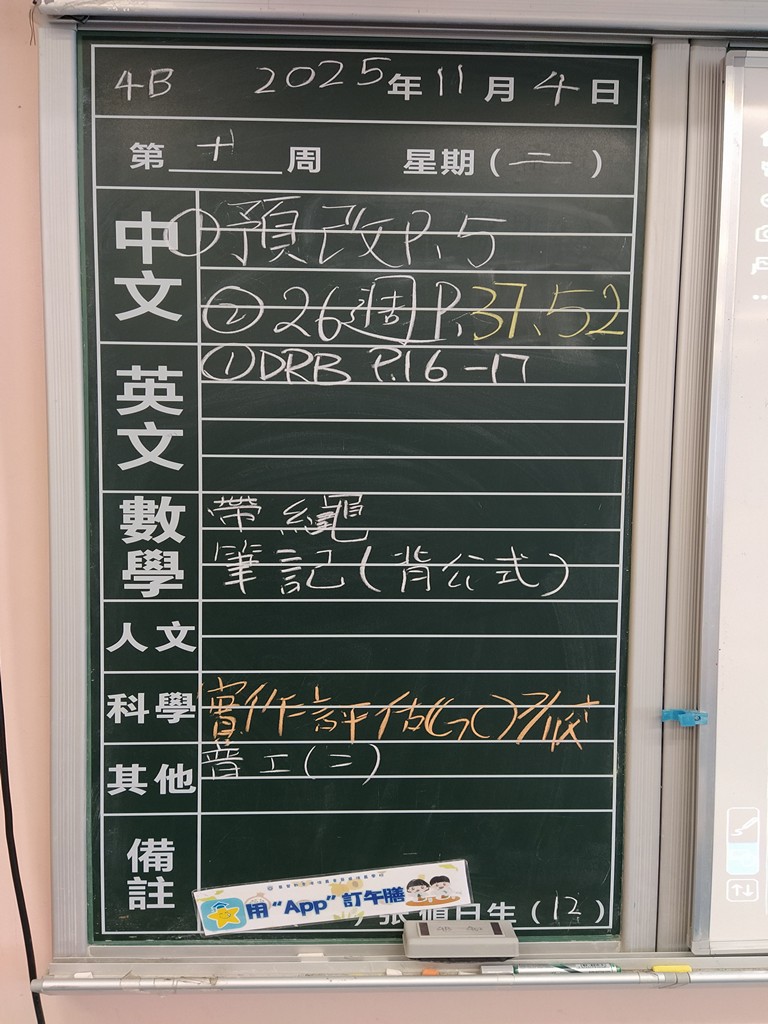 4B 2025年11月4日
第十周 星期(二)
中文
①預改P.5
②26週P.37、52
英文
①DRB P.16-17
數學
帶繩
筆記(背公式)
人文
科學
實作評估
其他
普工(二)
備註
用“App”訂午膳
張 日生(12)